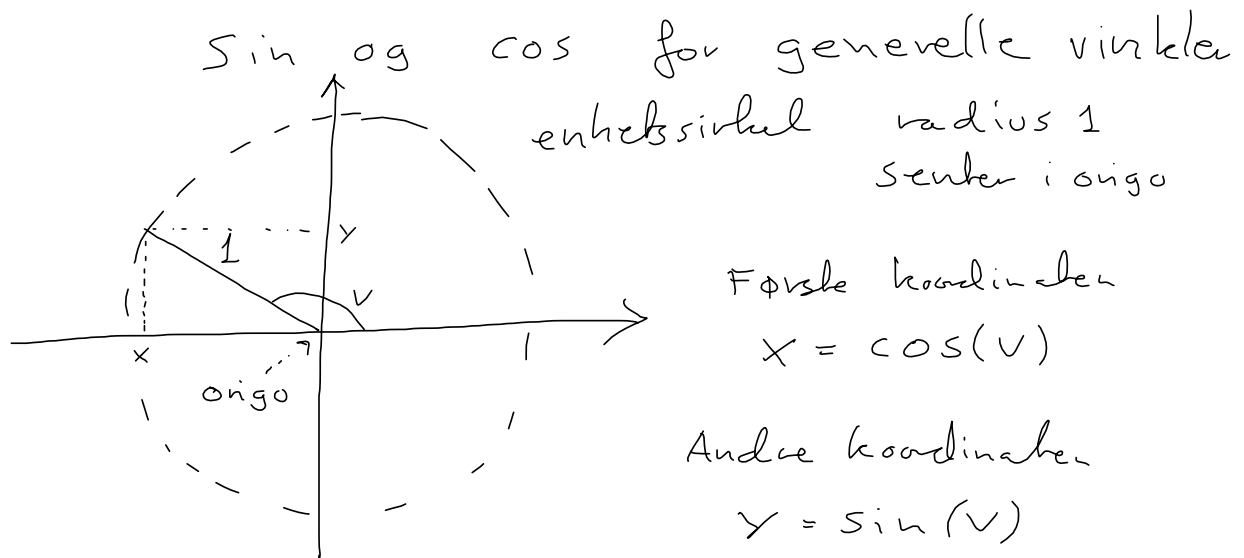 Sin og cos for generelle vinkler
enhetssirkel radius 1
senter i origo
y
1
v
x
origo
Første koordinaten
x = cos(v)
Andre koordinaten
y = sin(v)